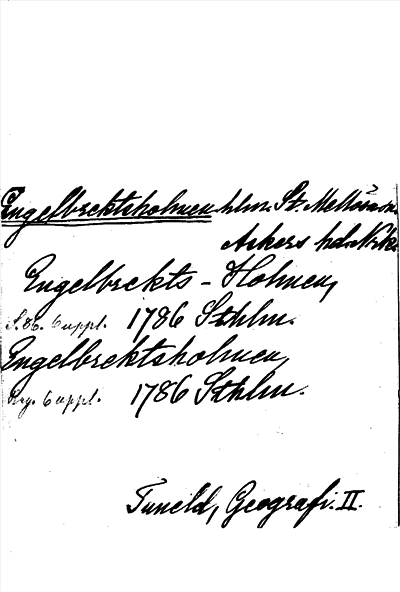 Engelbrektsholmen hlm. St. Mellösa sn.
Askers hd. Nrke.
Engelbrekts-Holmen,
S. 36. Suppl. 1786 Sthlm.
Engelbrektsholmen,
Reg. Suppl. 1786 Sthlm.
Tuneld, Geografi. II.